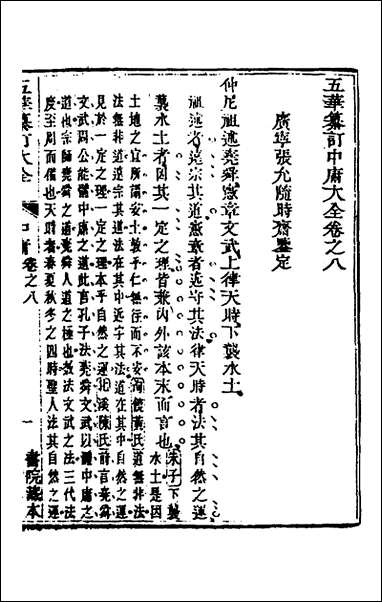 五華纂訂中庸大全卷之八
廣寧張允隨時齋鑒定
仲尼祖述堯舜憲章文武上律天時下襲水土
祖述者遠宗其道憲章者近守其法律天時者法其自然之運
襲水土者因其一定之理皆兼內外該本末而言也
朱子下襲
水土是因
土地之宜所謂安土敦乎仁無往而不安
饒黃氏道無非法
法無非道遠宗其道法在其中近守其法道在其中法其自然之運
見於一定之理一定之理本乎自然之運
北溪陳氏前言堯舜
文武周公能體中庸之道此言孔子法堯舜文武以體中庸之
道也宗師堯舜之道堯舜人道之極也效法文武之法三代法
度至周而備也天時者春夏秋冬之四時聖人法其自然之運
五華纂訂大全
中庸卷之八
一
書院藏本